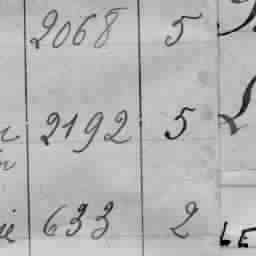 2068 5
2192 5
633 2
LE